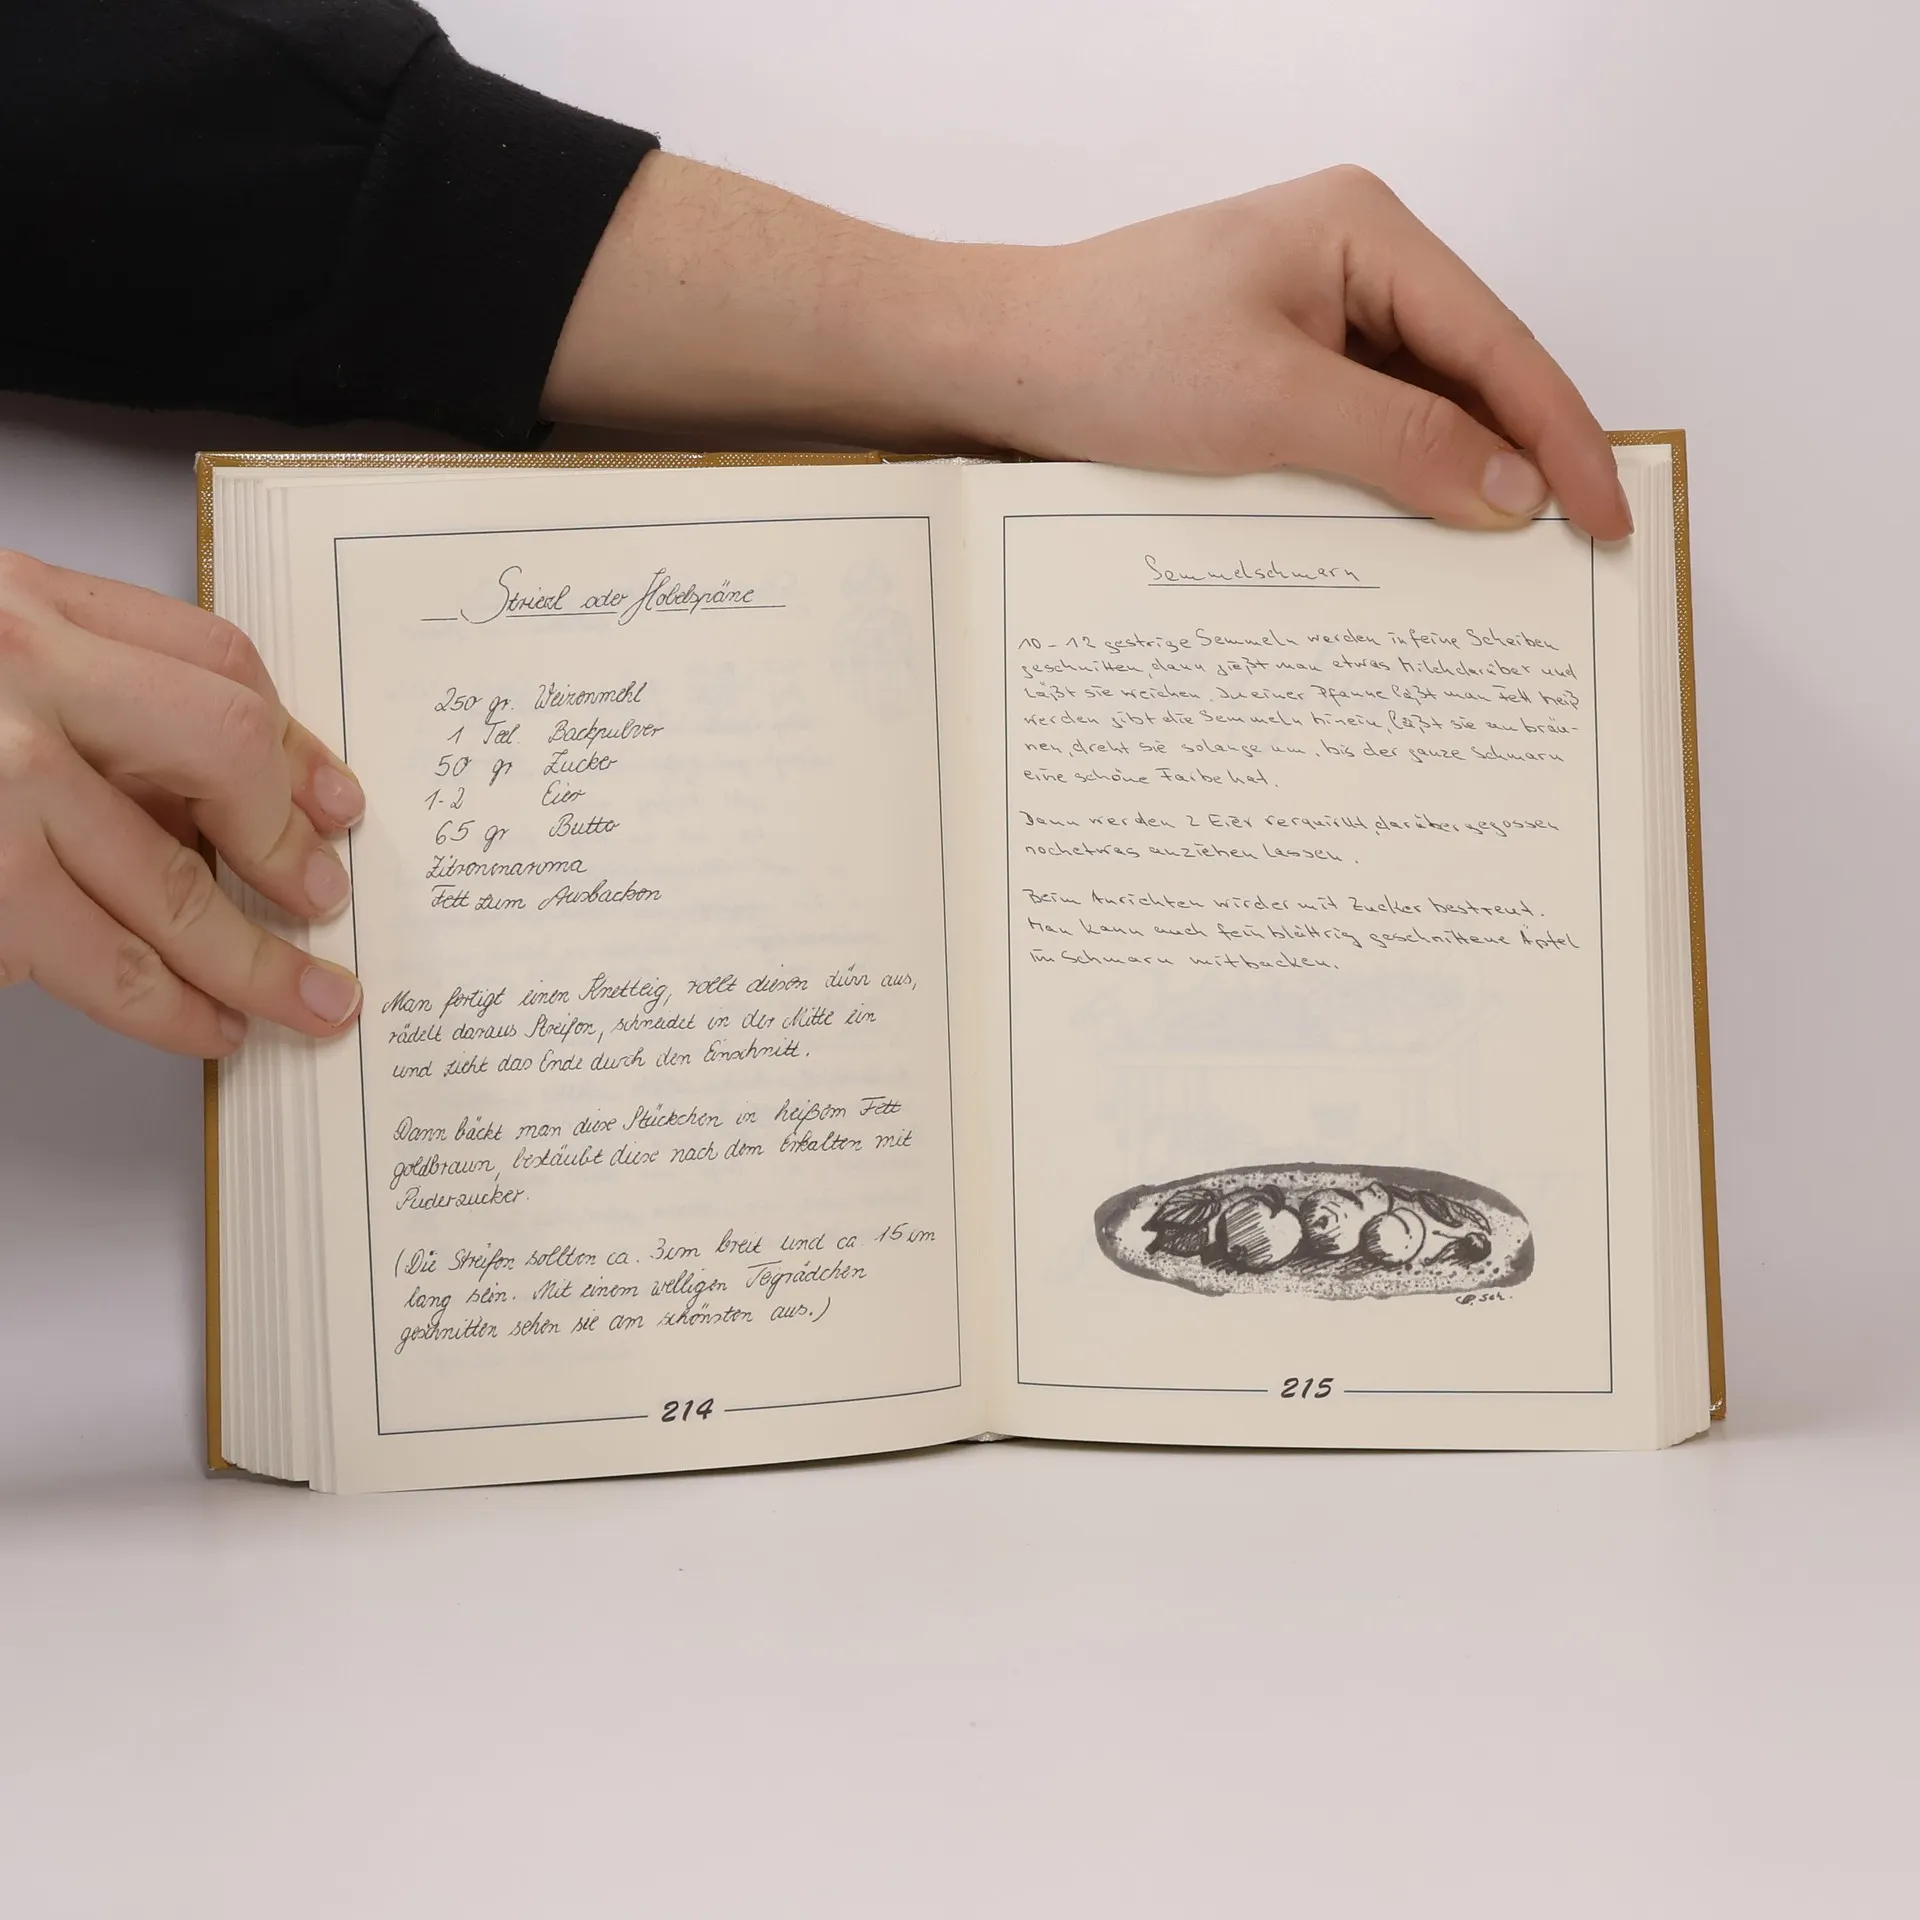 Striezl oder Hobelspäne
250 gr. Weizenmehl
1 Teel. Backpulver
50 gr Zucker
1-2 Eier
65 gr Butter
Zitronenaroma
Fett zum Ausbacken
Man fertigt einen Knetteig, rollt diesen dünn aus,
rädelt daraus Streifen, schneidet in der Mitte ein
und zieht das Ende durch den Einschnitt.
Dann bäckt man diese Stückchen in heißem Fett
goldbraun, bestäubt diese nach dem Erkalten mit
Puderzucker.
(Die Streifen sollten ca. 3cm breit und ca. 15 cm
lang sein. Mit einem welligen Teigrädchen
geschnitten sehen sie am schönsten aus.)
214
Semmelschmarn
10 - 12 gestrige Semmeln werden in feine Scheiben
geschnitten, dann gießt man etwas Milch darüber und
läßt sie weichen. In einer Pfanne läßt man Fett heiß
werden gibt die Semmeln hinein, läßt sie an bräu-
nen, dreht sie solange um, bis der ganze Schmarn
eine schöne Farbe hat.
Dann werden 2 Eier verquirlt, darüber gegossen
noch etwas anziehen lassen.
Beim Anrichten wird er mit Zucker bestreut.
Man kann auch fein blättrig geschnittene Äpfel
im Schmarn mitbacken.
Sch.
215